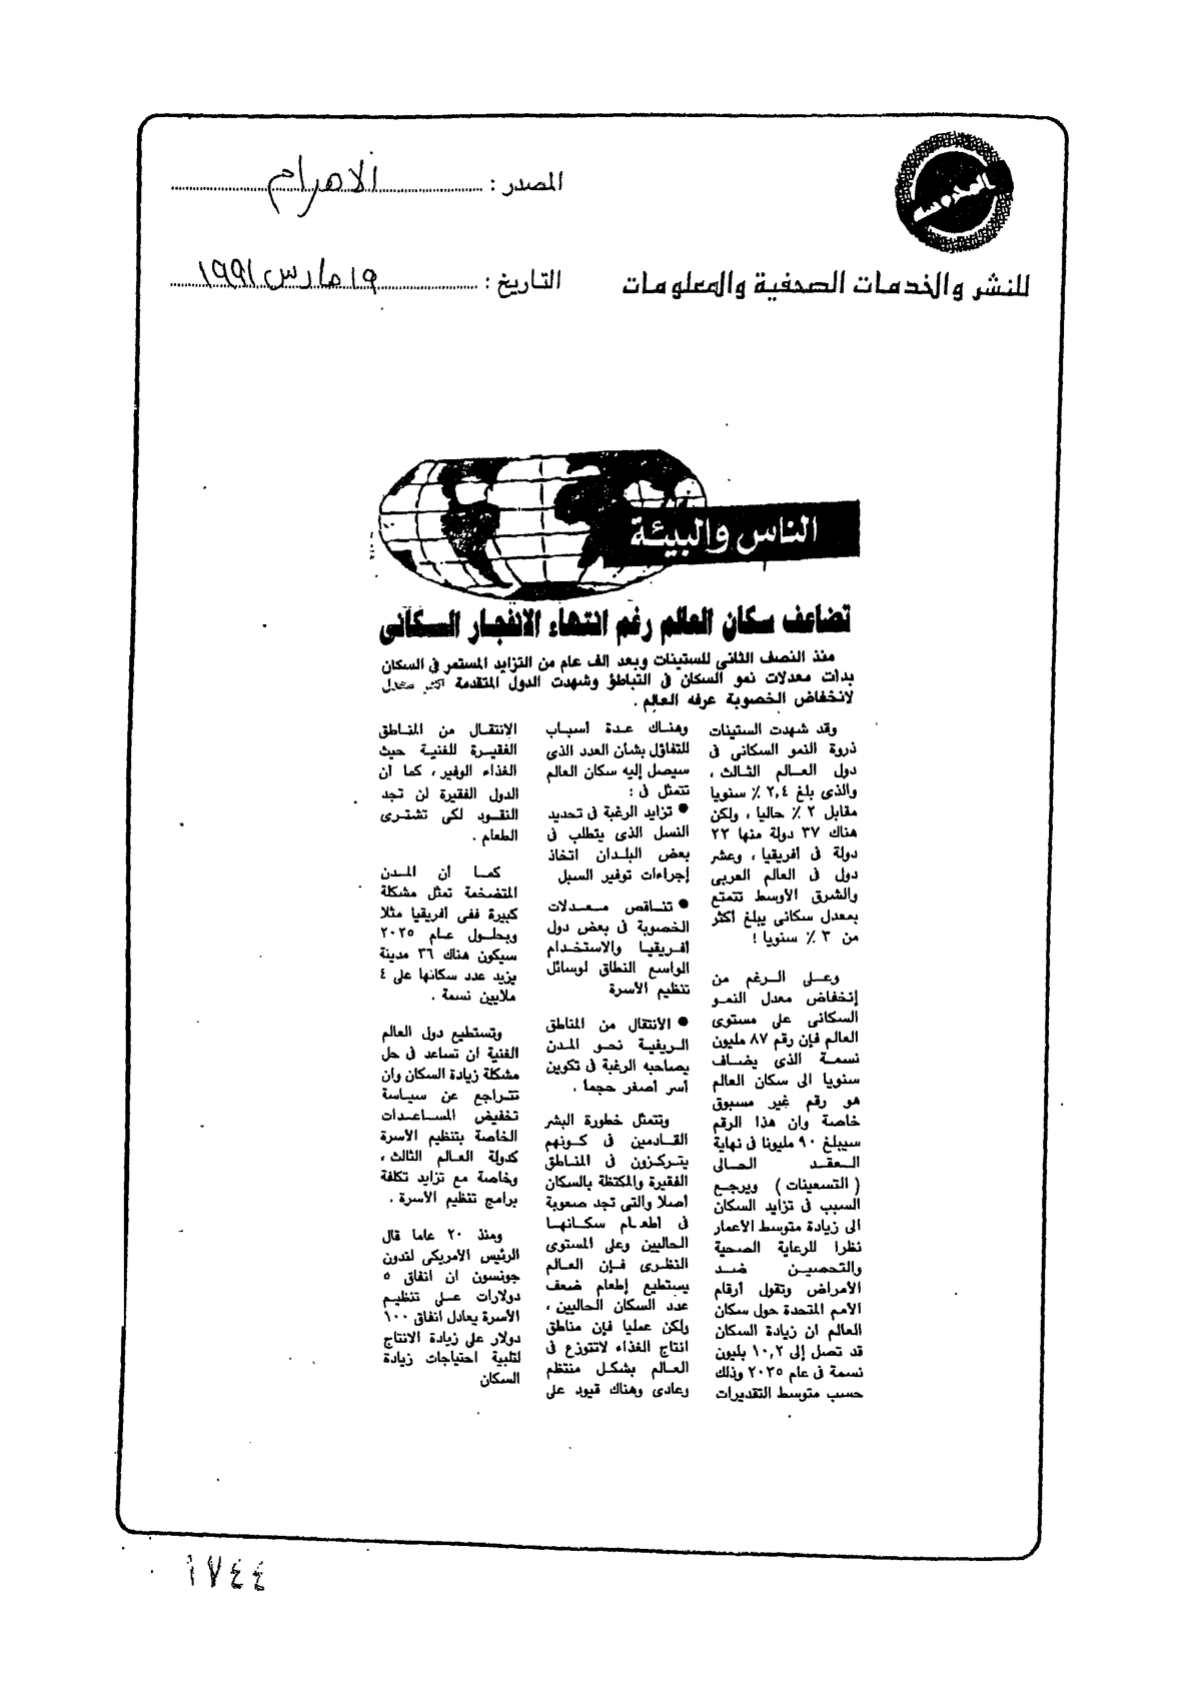 المصدر : الاهرام
التاريخ : ١٩ مارس ١٩٩١
للنشر والخدمات الصحفية والمعلومات
الناس والبيئة
تضاعف سكان العالم رغم انتهاء الانفجار السكانى
منذ النصف الثانى للستينات وبعد الف عام من التزايد المستمر فى السكان
بدات معدلات نمو السكان فى التباطؤ وشهدت الدول المتقدمة اكبر معدل
لانخفاض الخصوبة عرفه العالم .
وقد شهدت الستينات
ذروة النمو السكانى فى
دول العالم الثالث ،
والذى بلغ ٢,٤ ٪ سنويا
مقابل ٢ ٪ حاليا ، ولكن
هناك ٣٧ دولة منها ٢٢
دولة فى أفريقيا ، وعشر
دول فى العالم العربى
والشرق الأوسط تتمتع
بمعدل سكانى يبلغ اكثر
من ٣ ٪ سنويا !
وعلى الرغم من
إنخفاض معدل النمو
السكانى على مستوى
العالم فإن رقم ٨٧ مليون
نسمة الذى يضاف
سنويا الى سكان العالم
هو رقم غير مسبوق
خاصة وان هذا الرقم
سيبلغ ٩٠ مليونا فى نهاية
العقد الحالى
( التسعينات ) ويرجع
السبب فى تزايد السكان
الى زيادة متوسط الأعمار
نظرا للرعاية الصحية
والتحصين ضد
الأمراض وتقول أرقام
الأمم المتحدة حول سكان
العالم ان زيادة السكان
قد تصل إلى ١٠,٢ بليون
نسمة فى عام ٢٠٣٥ وذلك
حسب متوسط التقديرات
وهناك عدة أسباب
للتفاؤل بشأن العدد الذى
سيصل إليه سكان العالم
تتمثل فى :
● تزايد الرغبة فى تحديد
النسل الذى يتطلب فى
بعض البلدان اتخاذ
إجراءات توفير السبل
● تناقص معدلات
الخصوبة فى بعض دول
إفريقيا والاستخدام
الواسع النطاق لوسائل
تنظيم الأسرة
● الأنتقال من المناطق
الريفية نحو المدن
يصاحبه الرغبة فى تكوين
أسر أصغر حجما .
وتتمثل خطورة البشر
القادمين فى كونهم
يتركزون فى المناطق
الفقيرة والمكتظة بالسكان
أصلا والتى تجد صعوبة
فى اطعام سكانها
الحاليين وعلى المستوى
النظرى فإن العالم
يستطيع إطعام ضعف
عدد السكان الحاليين ،
ولكن عمليا فإن مناطق
انتاج الغذاء لاتتوزع فى
العالم بشكل منتظم
وعادى وهناك قيود على
الإنتقال من المناطق
الفقيرة للغنية حيث
الغذاء الوفير ، كما ان
الدول الفقيرة لن تجد
النقود لكى تشترى
الطعام .
كما أن المدن
المتضخمة تمثل مشكلة
كبيرة ففى افريقيا مثلا
وبحلول عام ٢٠٢٥
سيكون هناك ٣٦ مدينة
يزيد عدد سكانها على ٤
ملايين نسمة .
وتستطيع دول العالم
الغنية ان تساعد فى حل
مشكلة زيادة السكان وان
تتراجع عن سياسة
تخفيض المساعدات
الخاصة بتنظيم الأسرة
كدولة العالم الثالث ،
وخاصة مع تزايد تكلفة
برامج تنظيم الأسرة .
ومنذ ٢٠ عاما قال
الرئيس الأمريكى لندون
جونسون ان انفاق ٥
دولارات على تنظيم
الأسرة يعادل انفاق ١٠٠
دولار على زيادة الانتاج
لتلبية احتياجات زيادة
السكان
١٧٤٤